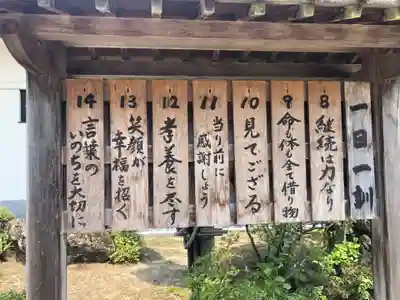 一日一訓
8
継続は力なり
9
命も体も全て借り物
10
見てござる
11
当り前に
感謝しよう
12
孝養を尽す
13
笑顔が
幸福を招く
14
言葉の
いのちを大切に